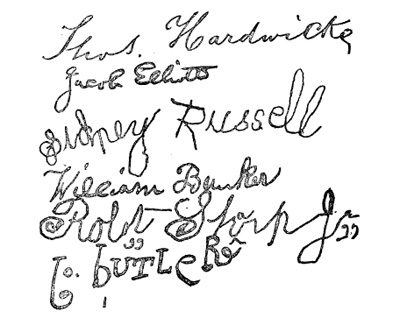 Thos. Hardwicke
Jacob Elliott
Sidney Russell
William Bunker
Robt Storp Jr
G. BUTLeR